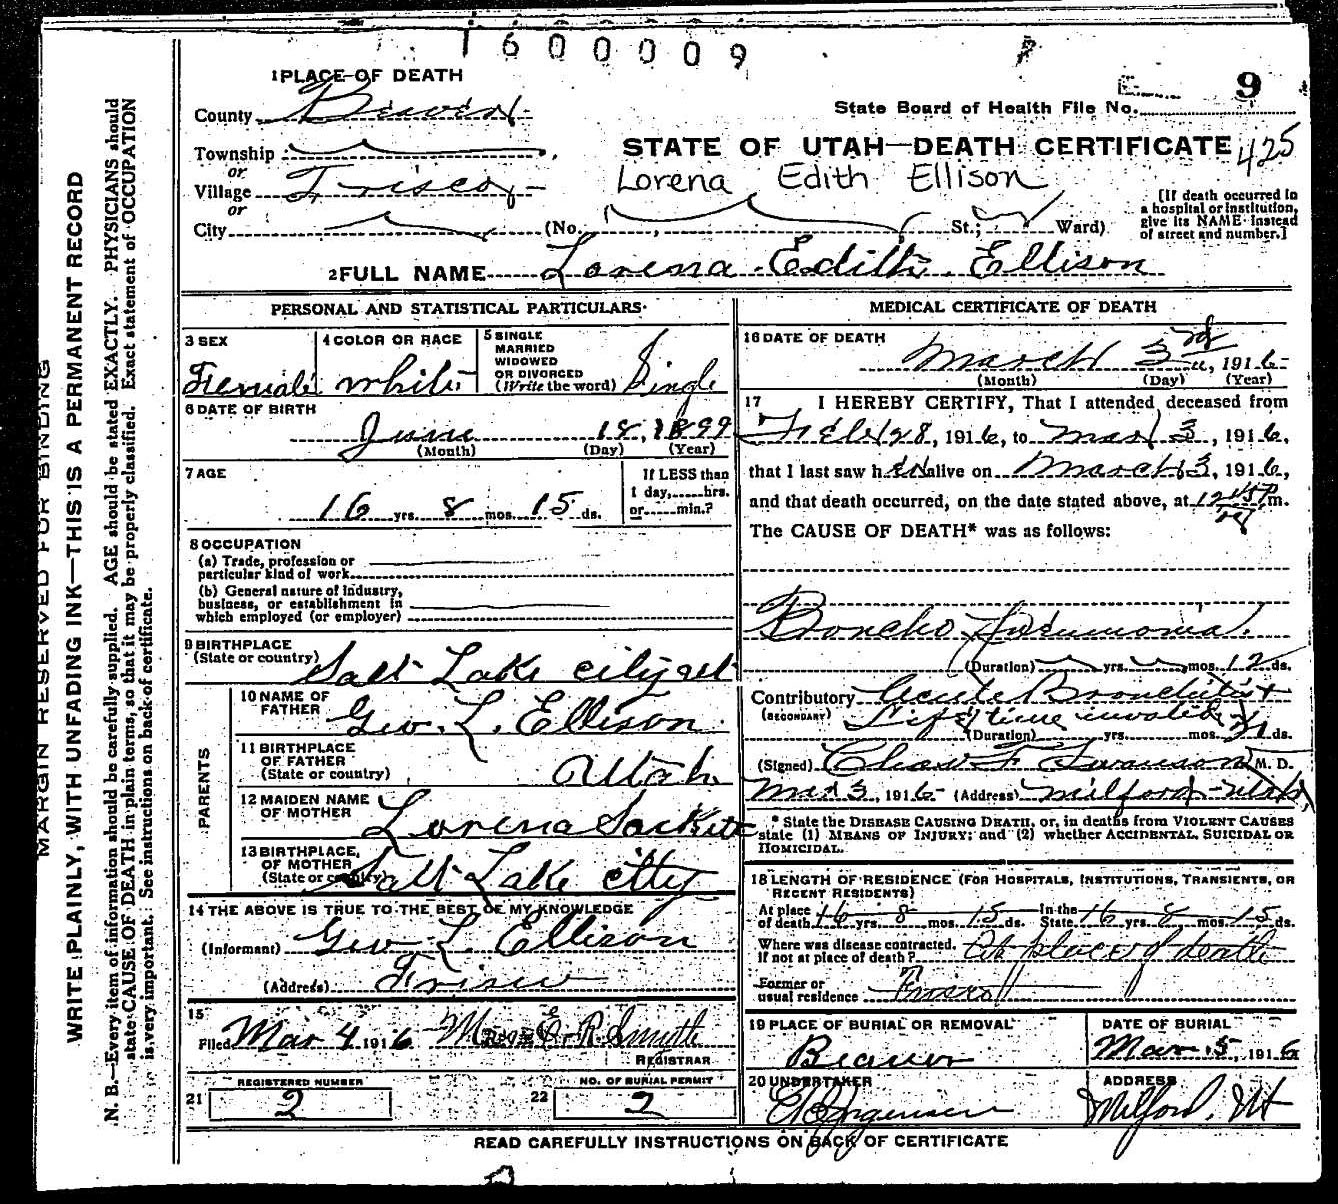 1600009
1 PLACE OF DEATH
9
County Beaver
State Board of Health File No.
Township
STATE OF UTAH—DEATH CERTIFICATE 425
or
Village Frisco
Lorena Edith Ellison
or
City (No. St.; Ward)
[If death occurred in
a hospital or institution,
give its NAME instead
of street and number.]
2 FULL NAME Lorena Edith Ellison
PERSONAL AND STATISTICAL PARTICULARS
3 SEX
Female
4 COLOR OR RACE
white
5 SINGLE
MARRIED
WIDOWED
OR DIVORCED
(Write the word) Single
6 DATE OF BIRTH
June 18, 1899
(Month) (Day) (Year)
7 AGE
16 yrs. 8 mos. 15 ds.
If LESS than
1 day,......hrs.
or......min.?
8 OCCUPATION
(a) Trade, profession or
particular kind of work
(b) General nature of industry,
business, or establishment in
which employed (or employer)
9 BIRTHPLACE
(State or country) Salt Lake city, ut
PARENTS
10 NAME OF
FATHER Geo. L. Ellison
11 BIRTHPLACE
OF FATHER
(State or country) Utah
12 MAIDEN NAME
OF MOTHER Lorena Sackett
13 BIRTHPLACE
OF MOTHER
(State or country) Salt Lake city
14 THE ABOVE IS TRUE TO THE BEST OF MY KNOWLEDGE
(Informant) Geo L. Ellison
(Address) Frisco
15
Filed Mar 4 1916 R. Smith
REGISTRAR
REGISTERED NUMBER
21 2
NO. OF BURIAL PERMIT
22 2
MEDICAL CERTIFICATE OF DEATH
16 DATE OF DEATH
March 3rd, 1916
(Month) (Day) (Year)
17 I HEREBY CERTIFY, That I attended deceased from
Feb 28, 1916, to Mar 3, 1916,
that I last saw her alive on March 3, 1916,
and that death occurred, on the date stated above, at 12 45 P m.
The CAUSE OF DEATH* was as follows:
Broncho Pneumonia.
(Duration) yrs. mos. 12 ds.
Contributory Acute Bronchitis +
(SECONDARY) Life time invalid
(Duration) yrs. mos. ds.
(Signed) Chas. F. Swanson M. D.
Mar 3, 1916 (Address) Milford Utah
* State the DISEASE CAUSING DEATH, or, in deaths from VIOLENT CAUSES
state (1) MEANS OF INJURY; and (2) whether ACCIDENTAL, SUICIDAL OR
HOMICIDAL.
18 LENGTH OF RESIDENCE (FOR HOSPITALS, INSTITUTIONS, TRANSIENTS, OR
RECENT RESIDENTS)
At place of death 16 yrs. 8 mos. 15 ds. In the State 16 yrs. 8 mos. 15 ds.
Where was disease contracted,
if not at place of death? At place of death
Former or
usual residence
19 PLACE OF BURIAL OR REMOVAL
Beaver
DATE OF BURIAL
Mar. 5, 1916
20 UNDERTAKER
ADDRESS
Milford, Ut
READ CAREFULLY INSTRUCTIONS ON BACK OF CERTIFICATE
MARGIN RESERVED FOR BINDING
WRITE PLAINLY, WITH UNFADING INK—THIS IS A PERMANENT RECORD
N. B.—Every item of information should be carefully supplied. AGE should be stated EXACTLY. PHYSICIANS should
state CAUSE OF DEATH in plain terms, so that it may be properly classified. Exact statement of OCCUPATION
is very important. See instructions on back of certificate.